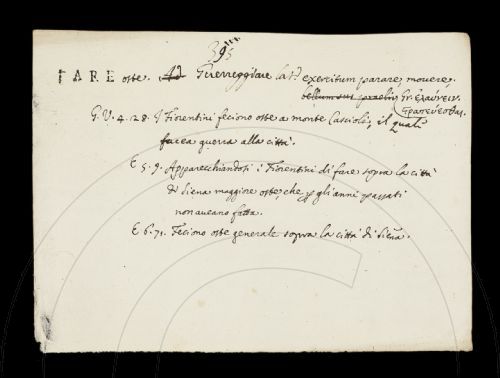 395
FARE oste. Ad Guerreggiare lat. exercitum parare, movere,
bellum sus praeliu, Gr. ἐλαύνειν.
ςρατεύεσθαι.
G. V. 4. 28. I Fiorentini feciono oste a monte Cascioli, il quale
facea guerra alla città.
E 5. 9. Apparecchiandosi i Fiorentini di fare sopra la città
di Siena maggiore oste, che p gli anni passati
non aveano fatta.
E 6. 71. Feciono oste generale sopra la città di Siena.